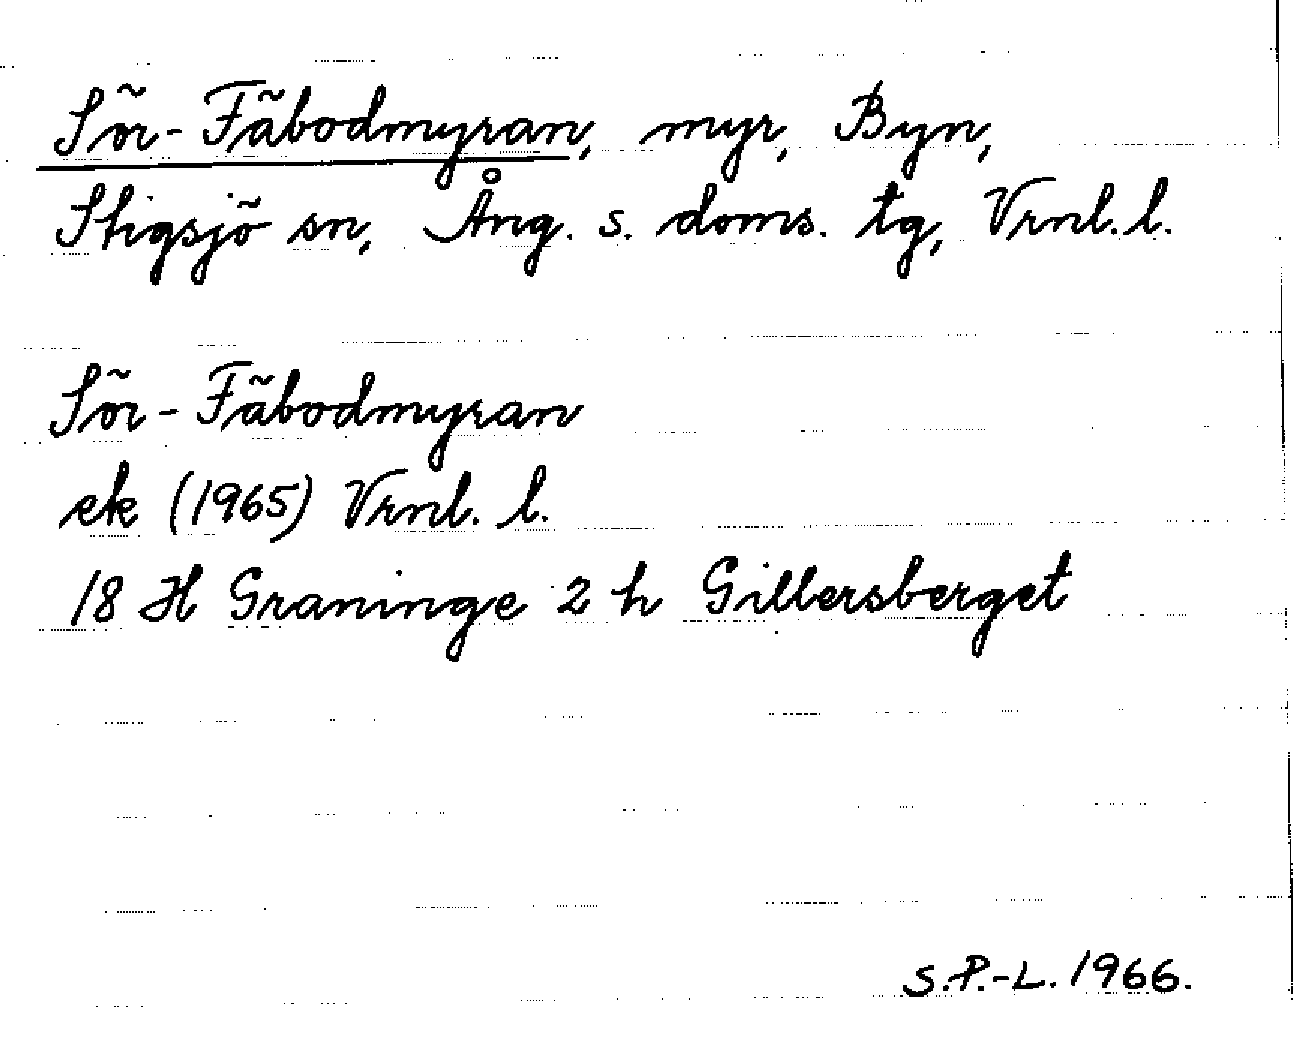 Sör-Fäbodmyran, myr, Byn,
Stigsjö sn, Ång. s. doms. tg, Vrnl. l.
Sör-Fäbodmyran
ek (1965) Vrnl. l.
18 H Graninge 2 h Gillersberget
S.P.-L. 1966.